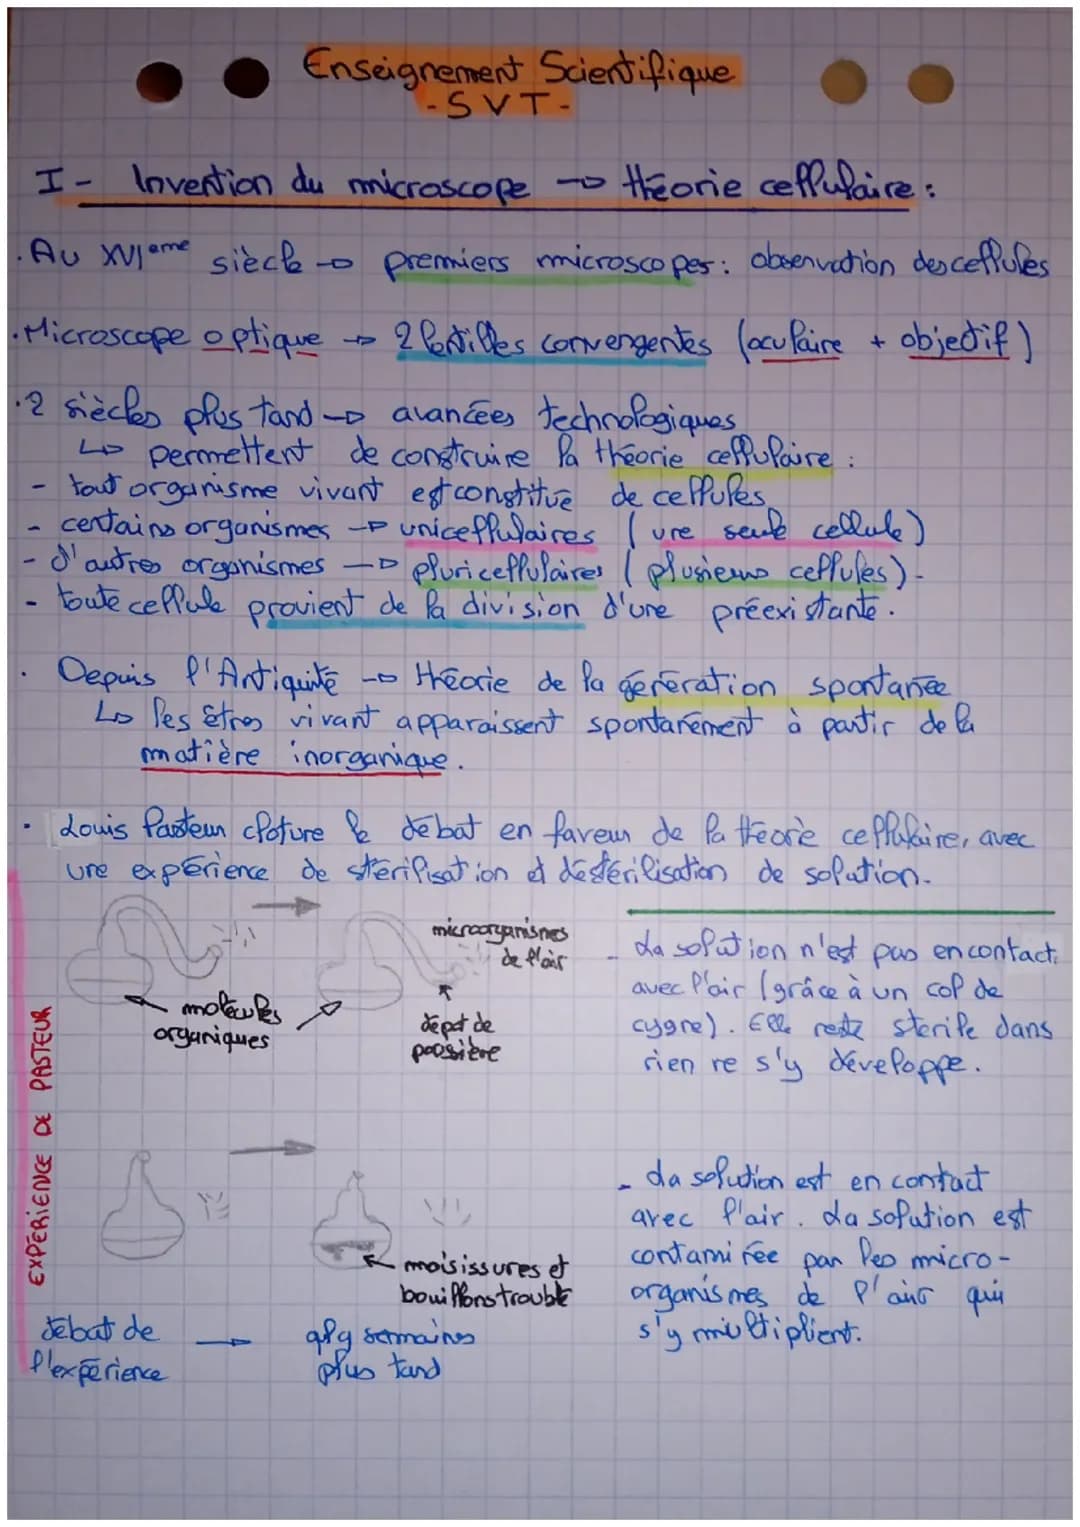 Enseignement Scientifique
- SVT -
I - Invention du microscope → théorie cellulaire :
. Au XVIeme siècle → premiers microscopes : observation des cellules
. Microscope optique → 2 lentilles convergentes (oculaire + objectif)
. 2 siècles plus tard → avancées technologiques
↳ permettent de construire la théorie cellulaire :
- tout organisme vivant est constitué de cellules
- certains organismes → unicellulaires (une seule cellule)
- d'autres organismes → pluricellulaires (plusieurs cellules).
- toute cellule provient de la division d'une préexistante.
. Depuis l'Antiquité → théorie de la génération spontanée
↳ les êtres vivant apparaissent spontanément à partir de la
matière inorganique.
. Louis Pasteur cloture le débat en faveur de la théorie cellulaire, avec
une expérience de stérilisation et déstérilisation de solution.
EXPÉRIENCE DE PASTEUR
microorganismes
de l'air
molécules
organiques
dépot de
poussière
- La solution n'est pas en contact
avec l'air (grâce à un col de
cygne). Elle reste sterile dans
rien ne s'y développe.
moisissures et
bouillons trouble
- La solution est en contact
avec l'air. La solution est
contaminée par les micro-
organismes de l'air qui
s'y multiplient.
débat de
l'expérience
→ qlq semaines
plus tard